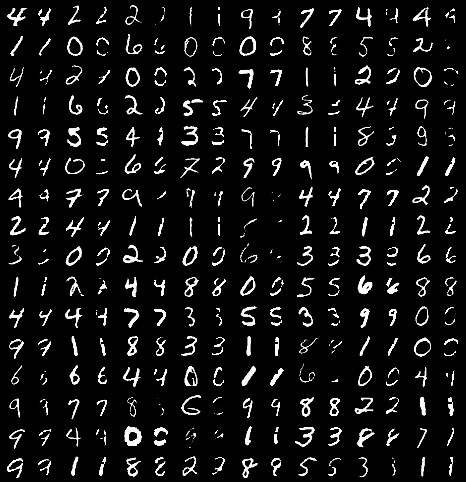 4 4 2 2 2 2 1 1 9 9 7 7 4 4 4 4
1 1 0 0 6 6 0 0 0 0 8 8 5 5 2
4 4 2 2 0 0 2 2 7 7 1 1 2 2 0 0
1 1 6 6 2 2 5 5 4 4 3 3 4 4 9 9
9 9 5 5 4 4 3 3 7 7 1 1 8 8 9 9
4 4 0 0 6 6 7 2 9 9 9 9 0 0 1 1
4 4 7 7 9 9 9 9 4 4 7 7 2 2
2 2 4 4 1 1 1 1 5 2 2 1 1 2 2
3 3 0 0 2 2 0 0 6 3 3 3 3 6 6
1 1 2 2 4 4 8 8 0 0 5 5 6 6 8 8
4 4 4 4 7 7 3 3 5 5 3 3 9 9 0 0
9 9 1 1 8 8 3 3 1 1 8 8 1 1 0 0
6 6 6 6 4 4 0 0 1 1 6 0 0 4 4
9 9 7 7 8 8 6 6 9 9 8 8 2 2 1 1
9 9 4 4 0 0 9 9 1 1 3 3 8 8 7 7
9 9 1 1 8 8 2 2 8 8 5 5 3 3 1 1